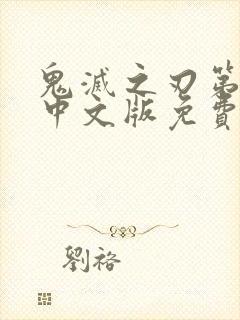 鬼滅之刃第
中文版免費
劉裕